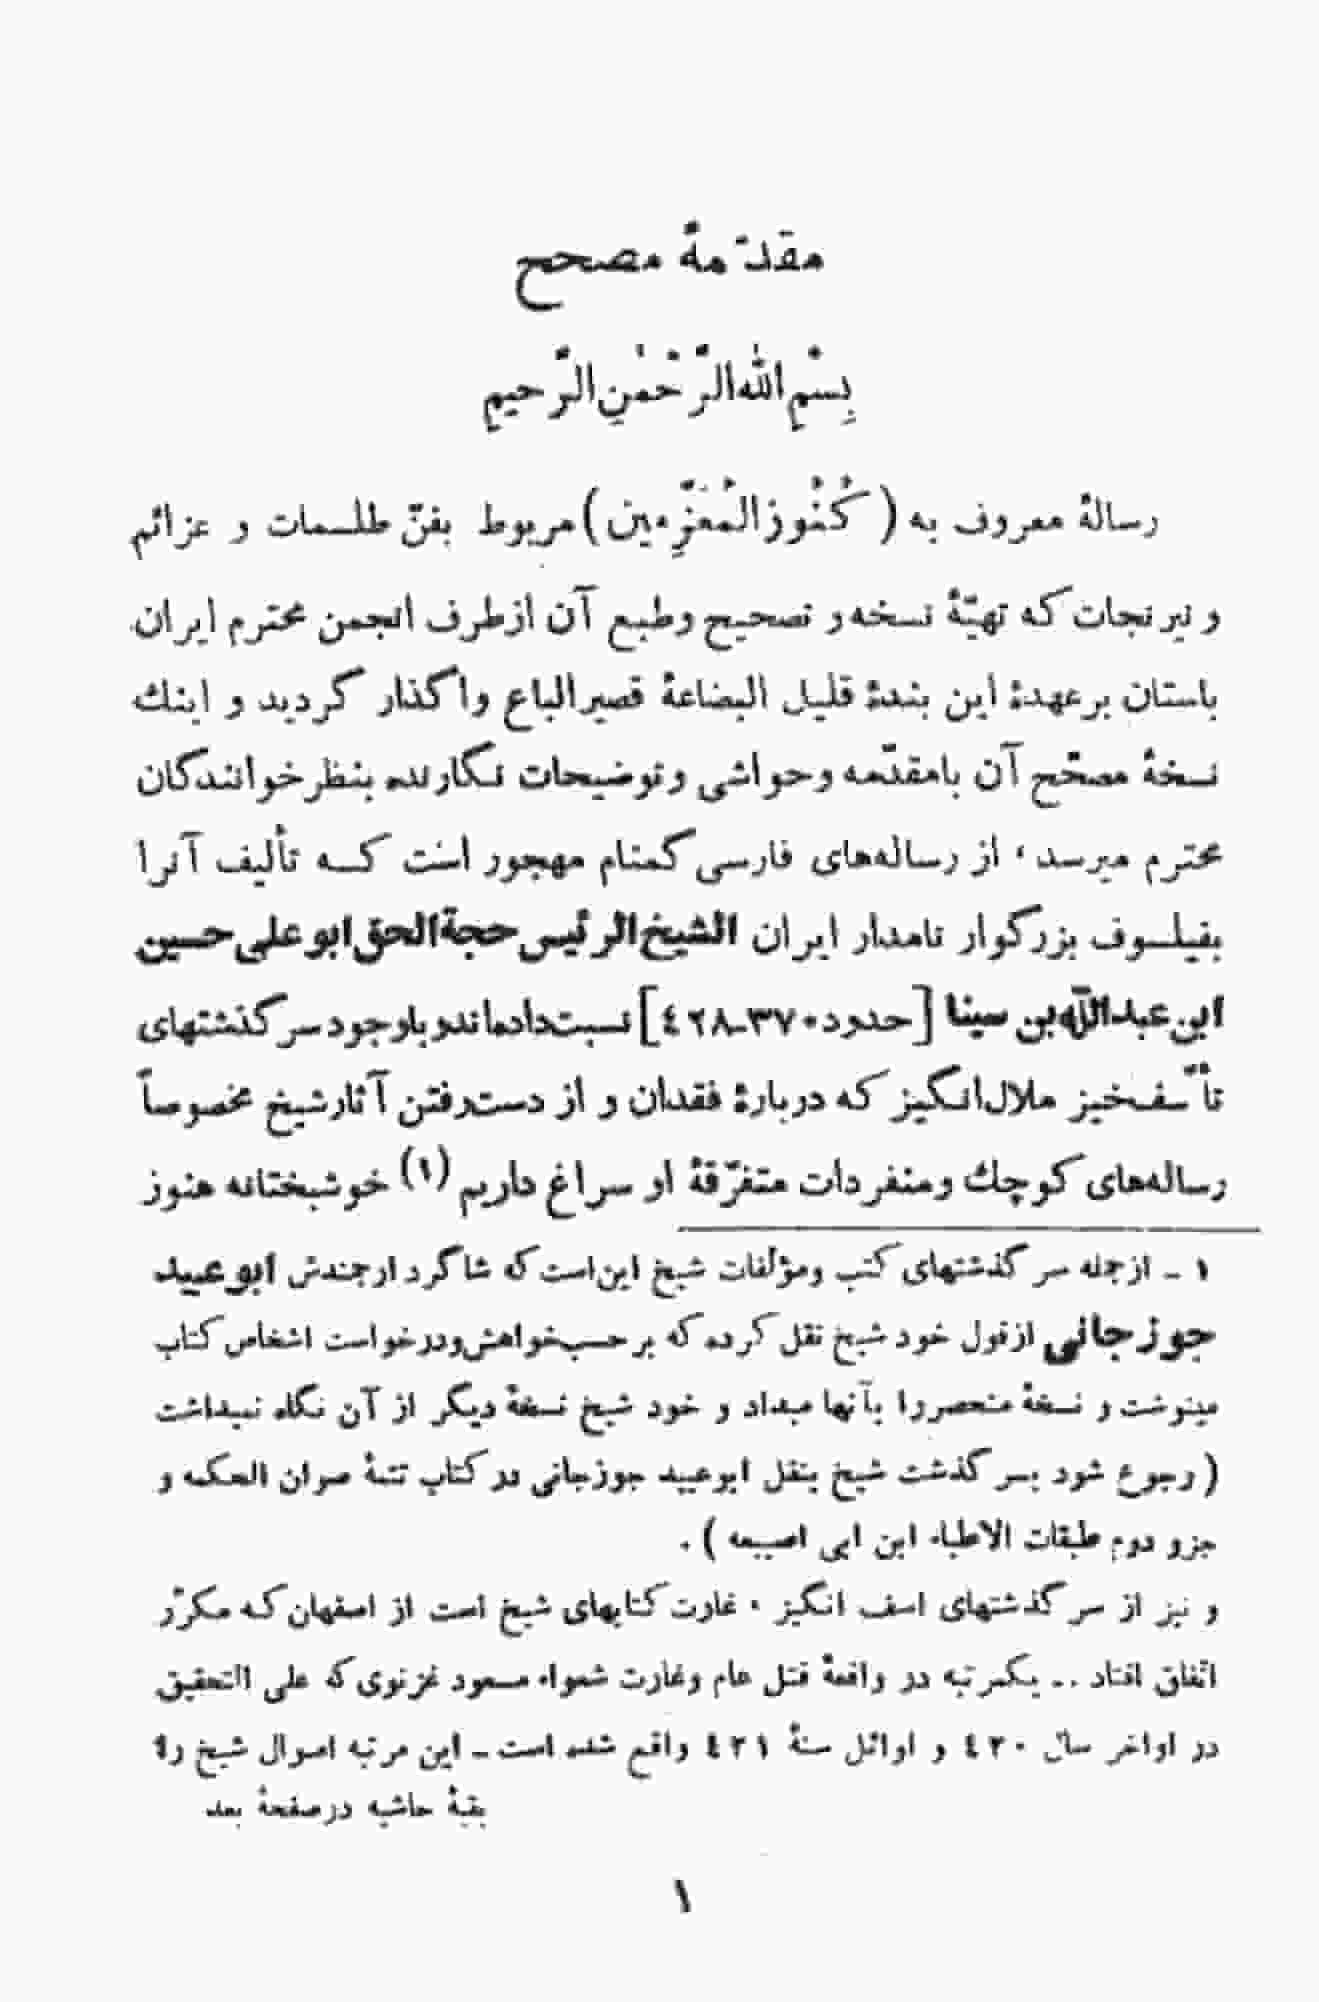 مقدّمهٔ مصحح
بِسْمِ اللّٰهِ الرَّحْمٰنِ الرَّحیمِ
رسالهٔ معروف به (کُنُوز المُعَزِّمین) مربوط بفنّ طلسمات و عزائم
و نیرنجات که تهیّهٔ نسخه و تصحیح وطبع آن ازطرف انجمن محترم ایران
باستان برعهدهٔ این بندهٔ قلیل البضاعهٔ قصیرالباع واگذار گردید و اینك
نسخهٔ مصحّح آن بامقدّمه وحواشی وتوضیحات نگارنده بنظرخوانندگان
محترم میرسد ، از رساله‌های فارسی گمنام مهجور است که تألیف آنرا
بفیلسوف بزرگوار نامدار ایران الشیخ الرئیس حجةالحق ابوعلی حسین
ابن عبدالله بن سینا [حدود۳۷۰-٤۲۸] نسبت‌داده‌اند وباوجود سرگذشتهای
تأسّف‌خیز ملال‌انگیز که دربارهٔ فقدان و از دست‌رفتن آثارشیخ مخصوصاً
رساله‌های کوچك ومنفردات متفرّقهٔ او سراغ داریم (۱) خوشبختانه هنوز
۱ - ازجمله سرگذشتهای کتب ومؤلفات شیخ این‌است که شاگرد ارجمندش ابوعبید
جوزجانی ازقول خود شیخ نقل کرده که برحسب‌خواهش‌ودرخواست اشخاص کتاب
مینوشت و نسخهٔ منحصررا بآنها میداد و خود شیخ نسخهٔ دیگر از آن نگاه نمیداشت
( رجوع شود بسرگذشت شیخ بنقل ابوعبید جوزجانی در کتاب تتمهٔ صوان الحکمه و
جزو دوم طبقات الاطباء ابن ابی اصیبعه ) .
و نیز از سرگذشتهای اسف انگیز ، غارت کتابهای شیخ است از اصفهان که مکرّر
اتفاق افتاد .. یکمرتبه در واقعهٔ قتل عام وغارت شعواء مسعود غزنوی که علی التحقیق
در اواخر سال ٤۲۰ و اوائل سنهٔ ٤۲۱ واقع شده است - این مرتبه اموال شیخ را
بقیهٔ حاشیه درصفحهٔ بعد
۱